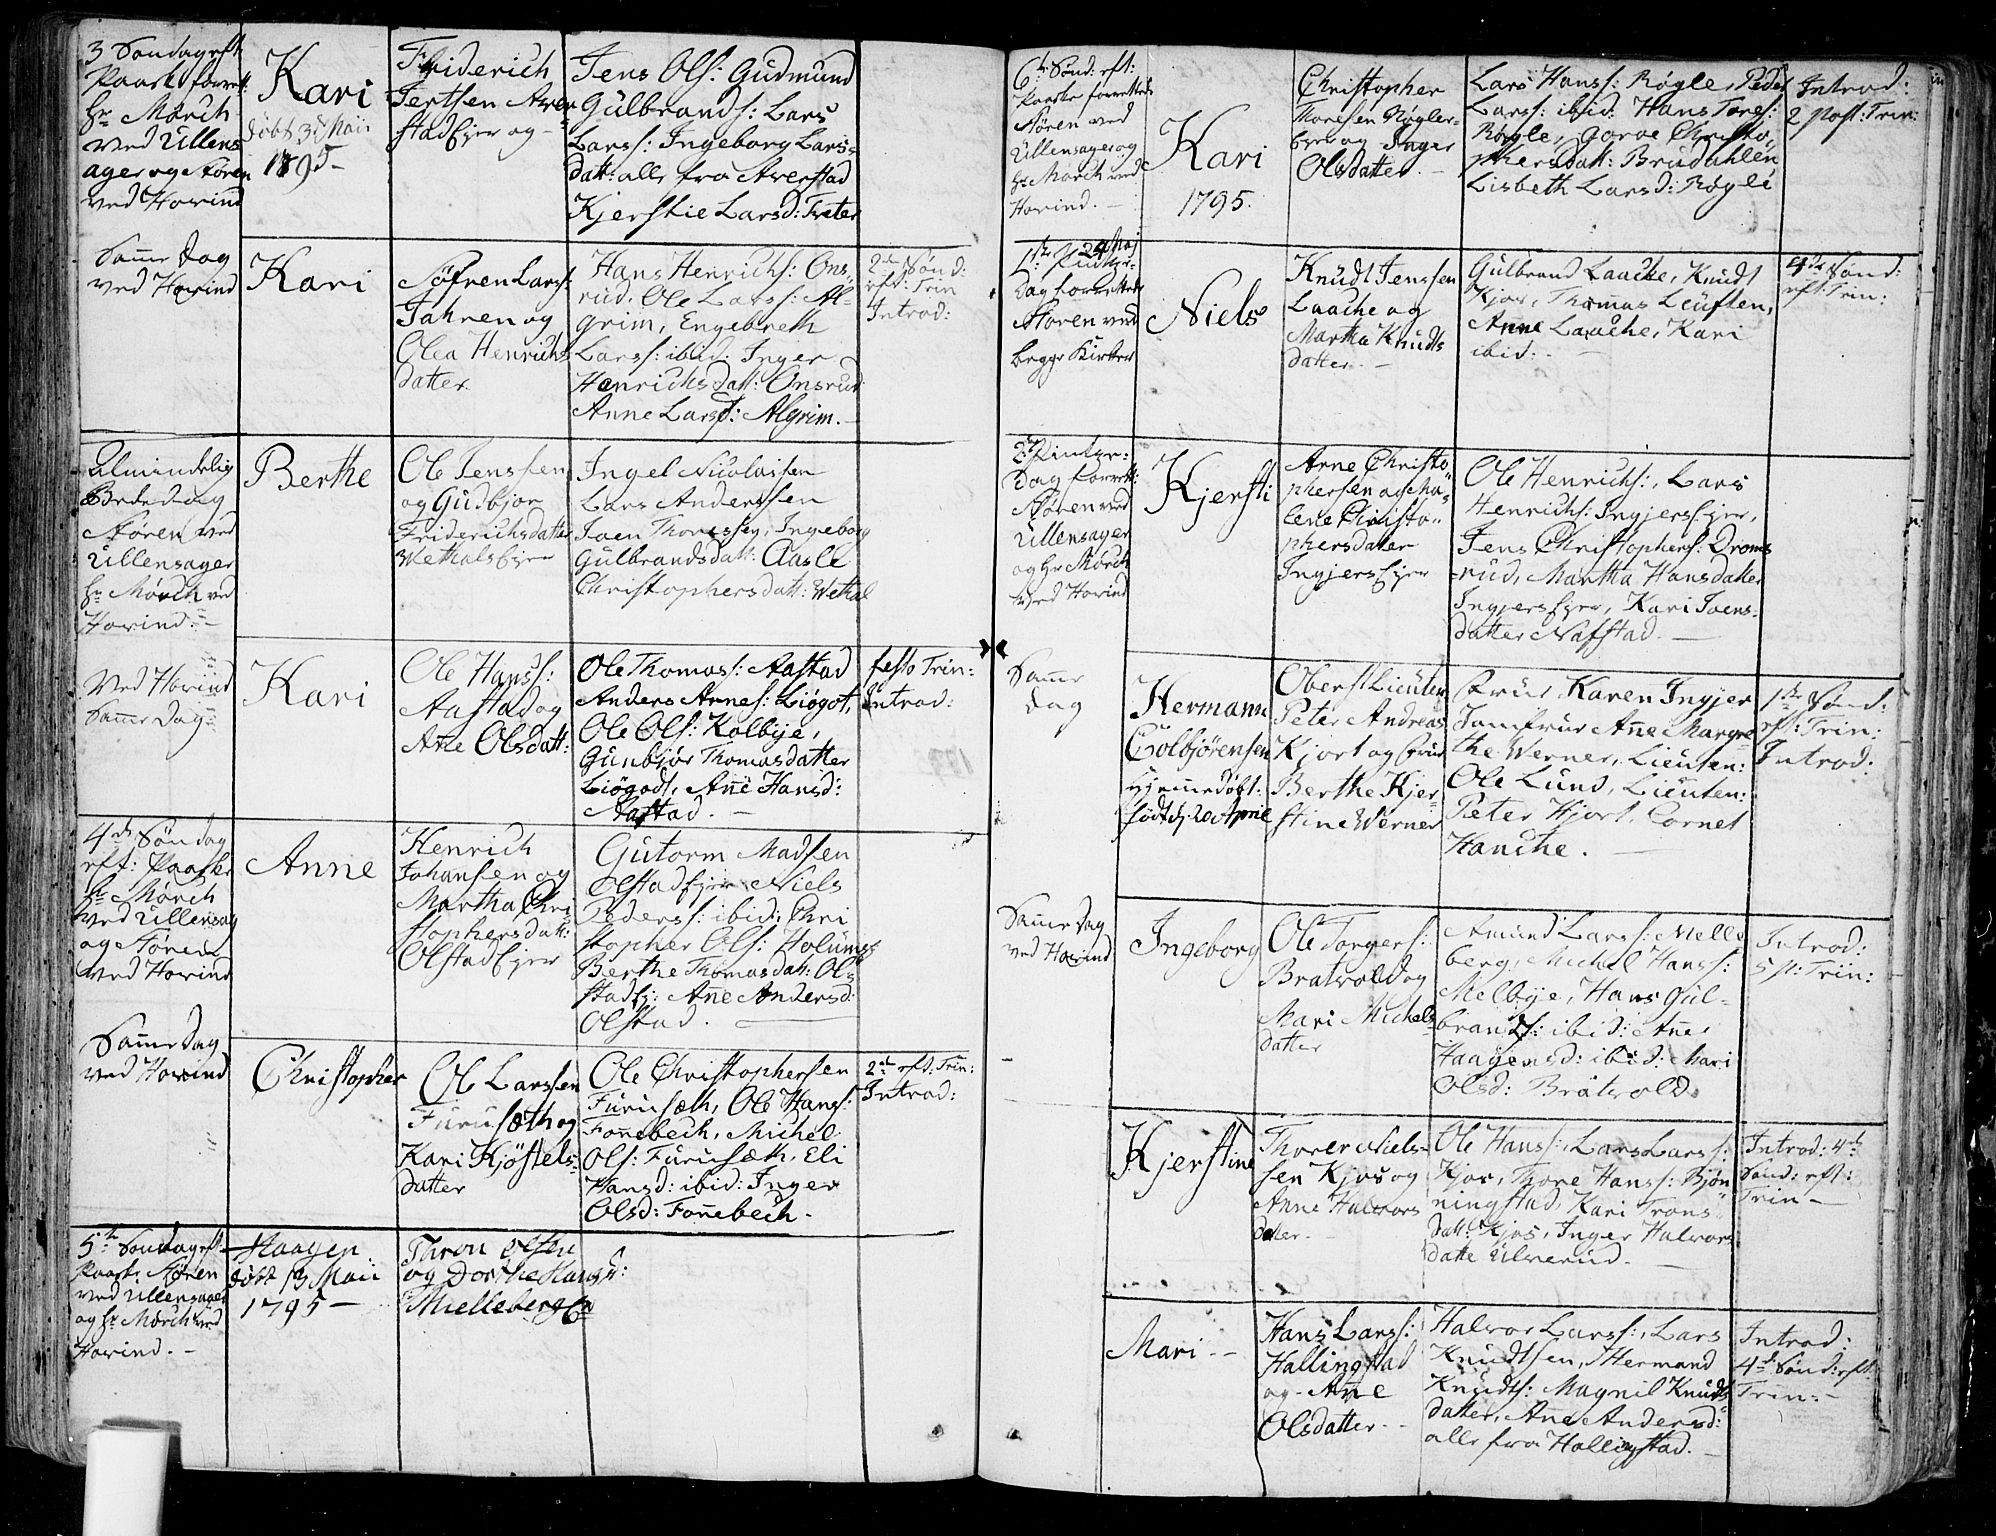 3 Søndag eft:
Paaske forrett:
Hr Mørch
ved Ullens
ager og Støren
ved Hovind
Kari
døbt 3 Maii
1795 -
Friderich
Jertsen Aver
stad Ejer og -
Jens Ols: Gudmund
Gulbrands: Lars
Lars: Ingeborg Lars-
datt: alle fra Averstad
Kjerstie Larsd: Træter
Samme Dag
ved Hovind
Kari
Søfren Lars:
Jahren og
Olea Henrichs
datter
Hans Henrichs: Ons-
rud, Ole Lars: Al-
grim, Engebreth
Lars: ibid: Inger
Henrichsdatt: Onsrud
Anne Larsd: Algrim. -
2de Sønd:
eft: Trin
Introd:
Almindelig
Bededag
Støren ved
Ullensager
Hr Mørch ved
Hovind: -
Berthe
Ole Jensen
og Gudbjor
Friderichsdatter
Wethals Ejer
Ingel Nicolaisen
Lars Andersen
Joen Thoresen, Ingeborg
Gulbrandsdatt: Aasle
Christophersdatt: Wethal
Ved Hovind
Samme Dag:
Kari
Ole Hans:
Aastad og
Anne Olsdatt:
Ole Thomas: Aastad
Anders Arnes: Liøgot,
Ole Ols: Kolbye,
Gunbjør Thomasdatter
Liøgodt, Anne Hansd:
Aastad. -
festo Trin:
Introd:
4de Søndag
eft: Paaske
Hr Mørch
ved Ullensag
og Støren
ved Hovind
Anne
Henrich
Johansen og
Martha Chri
stophersdatt:
Olstad Ejer
Gutorm Madsen
Olstad Ejer Niels
Peders: ibid: Chri
stopher Ols: Holums
Berthe Thomasdatt: Ol-
stad Ej: Anne Andersd:
Olstad.
Samme Dag
ved Hovind
Christopher
Ole Larsen
Furusæth og
Kari Kjøstels-
datter
Ole Christophersen
Furusæth, Ole Hans:
Fonnebech, Michel
Ols: Furusæth, Eli
Hansd: ibid: Inger
Olsd: Fonnebech -
2de eft: Trin:
Introd:
5te Søndag eft:
Paask: Støren
ved Ullensager
og Hr Mørch ved
Hovind. -
Haagen
døbt Maii
1795 -
Thron Olsen
og Dorthe Hans:
Mielleberg
6te Sønd: eft:
Paaske forrettede
Støren ved
Ullensager og
Hr Mørch ved
Hovind. -
Kari
1795.
Christopher
Thoresen Røgler-
Ejer og Inger
Olsdatter. -
Lars Hans: Røgle, Peder
Lars: ibid: Hans Tores:
Røgle, Christo
phersdatt: Brudahlen
Lisbeth Larsd: Røgle
Introd:
2 post: Trin:
24 Maj
1te Pintse-
Dag forrettede
Støren ved
begge Kirker
Niels
Knudt Jensen
Laache og
Martha Knudts
datter. -
Gulbrand Laache, Knudt
Kjos, Thomas Leuften,
Anne Laache, Kari
ibid: -
4de Sønd:
eft: Trin:
2den Pintse-
Dag forrett:
Støren ved
Ullensager
og Hr Mørch
ved Hovind
Kjersti
Arne Christo
phersen og Ma-
lene Christo-
phersdatter
Ingjers Ejer
Ole Henrichs:, Lars
Henrichs: Ingjers Ejer,
Jens Christophers: Droms
rud, Martha Hansdatter
Ingjers Ejer, Kari Joens-
datter Nafstad. -
Samme
Dag
Hermann
Colbjørensen
hjemmedøbt:
født d: 20 April
Oberst Lieuten:
Peter Andreas
Kjort og Frue
Berthe Kjer-
stine Werner
Frue Karen Ingjer
Jomfrue Anne Margre
the Werner, Lieuten:
Ole Lund, Lieuten:
Peter Hjort, Cornet
Hanche. -
1te Sønd:
eft: Trin:
Introd:
Samme Dag
ved Hovind
Ingeborg
Ole Torgers:
Bratvold og
Mari Michels
datter
Amund Lars: Melle
berg, Michel Hans:
Melbye, Hans Gul-
brands: ibid: Anne
Haagensd: ibid: Mari
Olsd: Bratvold.
Introd:
5 p: Trin:
Kjerstine
Thorer Niels-
sen Kjos og
Anne Halvors
datter. -
Ole Hans:, Lars Lars:
Kjos, Tore Hans: Bjøn
ningstad, Kari Trons
datt: Kjos, Inger Halvors
datte Ulverud. -
Introd: 4de
Sønd: eft:
Trin -
Mari - -
Hans Lars:
Hallingstad
og Anne
Olsdatter - -
Halvor Lars:, Lars
Knudtsen, Hermand
Knudts: Magnil Knudts
datter, Anne Andersd:
alle fra Hallingstad. -
Introd:
4de Sønd: eft:
Trin: -